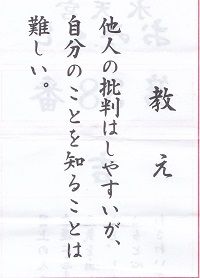 教え
他人の批判はしやすいが、
自分のことを知ることは
難しい。